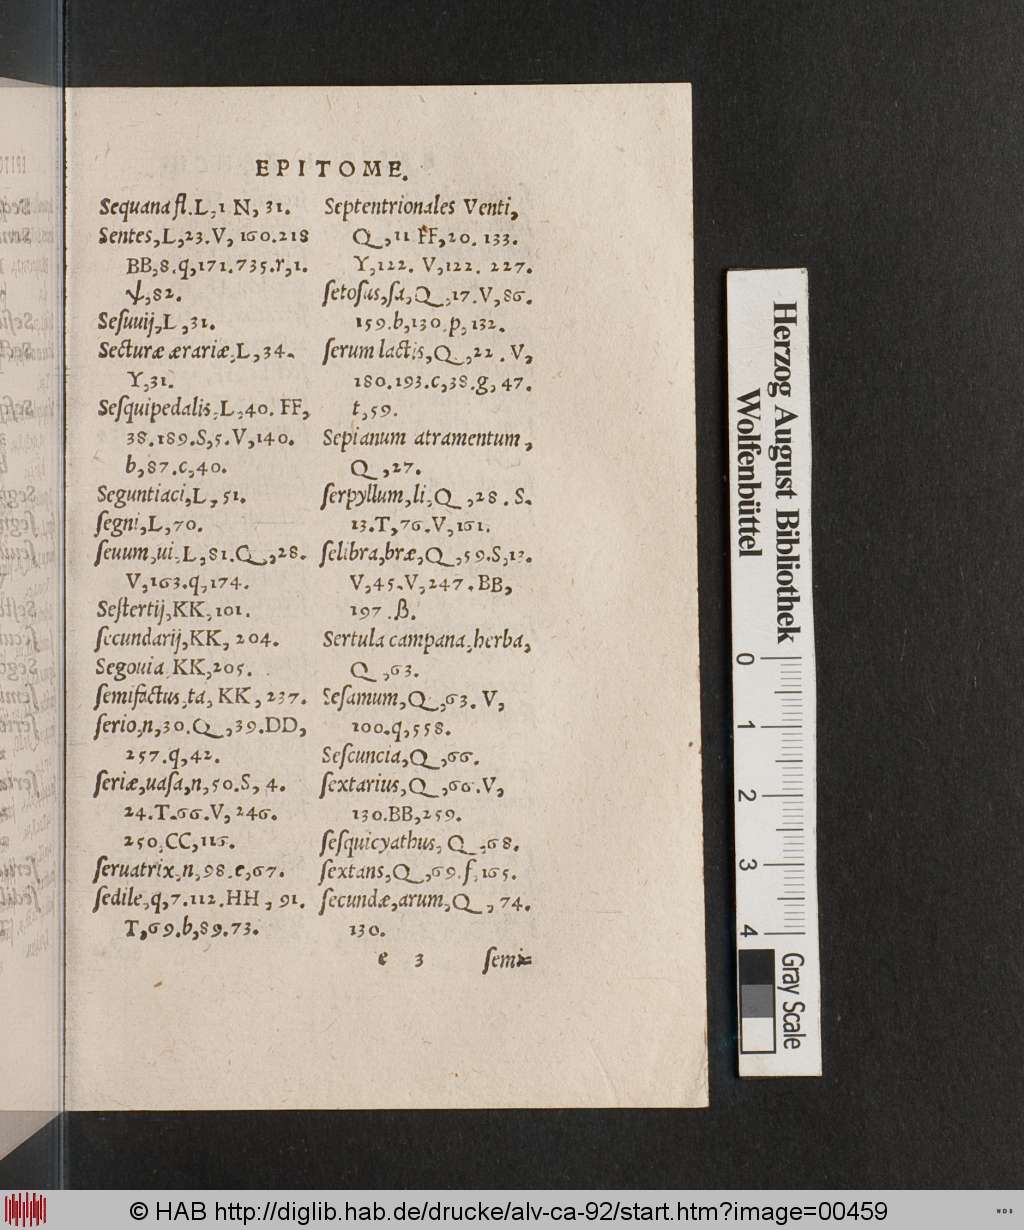 EPITOME.
Sequana fl. L,1 N, 31.
Sentes, L, 23. V, 160. 218
BB, 8. q, 171. 735. r, 1.
ψ, 82.
Sesuuij, L, 31.
Secturæ ærariæ, L, 34.
Y, 31.
Sesquipedalis, L, 40. FF,
38. 189. S, 5. V, 140.
b, 87. c, 40.
Seguntiaci, L, 51.
ſegni, L, 70.
ſeuum, ui, L, 81. Q, 28.
V, 163. q, 174.
Sestertij, KK, 101.
ſecundarij, KK, 204.
Segouia KK, 205.
ſemifactus, ta, KK, 237.
ſerio, n, 30. Q, 39. DD,
257. q, 42.
ſeriæ, uaſa, n, 50. S, 4.
24. T. 66. V, 246.
250. CC, 116.
ſeruatrix, n, 98. e, 67.
ſedile, q, 7. 112. HH, 91.
T, 69. b, 89. 73.
Septentrionales Venti,
Q, 11 FF, 20. 133.
Y, 122. V, 122. 227.
ſetoſus, ſa, Q, 17. V, 86.
159. b, 130. p, 132.
ſerum lactis, Q, 22. V,
180. 193. c, 38. g, 47.
t, 59.
Sepianum atramentum,
Q, 27.
ſerpyllum, li, Q, 28. S.
13. T, 76. V, 161.
ſelibra, bræ, Q, 59. S, 13.
V, 45. V, 247. BB,
197. β.
Sertula campana, herba,
Q, 63.
Seſamum, Q, 63. V,
100. q, 558.
Seſcuncia, Q, 66.
ſextarius, Q, 66. V,
130. BB, 259.
ſeſquicyathus, Q, 68.
ſextans, Q, 69. f, 165.
ſecundæ, arum, Q, 74.
130.
e 3 ſemi=
Herzog August Bibliothek
Wolfenbüttel
0 1 2 3 4
Gray Scale
© HAB http://diglib.hab.de/drucke/alv-ca-92/start.htm?image=00459